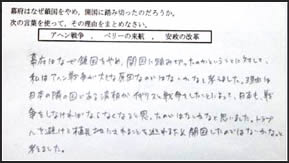 幕府はなぜ鎖国をやめ、開国に踏みきったのだろうか。
次の言葉を使って、その理由をまとめなさい。
アヘン戦争 、 ペリーの来航 、 安政の改革
幕府はなぜ鎖国をやめ、開国に踏み切ったのかということに対して、
私はアヘン戦争が大きな原因なのではないかなと考えました。理由は
日本の隣の国である清和がイギリスと戦争をしたことによって、日本も、戦
争をしなければならなくなると思ったのではないかなと思いました。トラブ
を避けて
開国したのではないかなと
考えました。